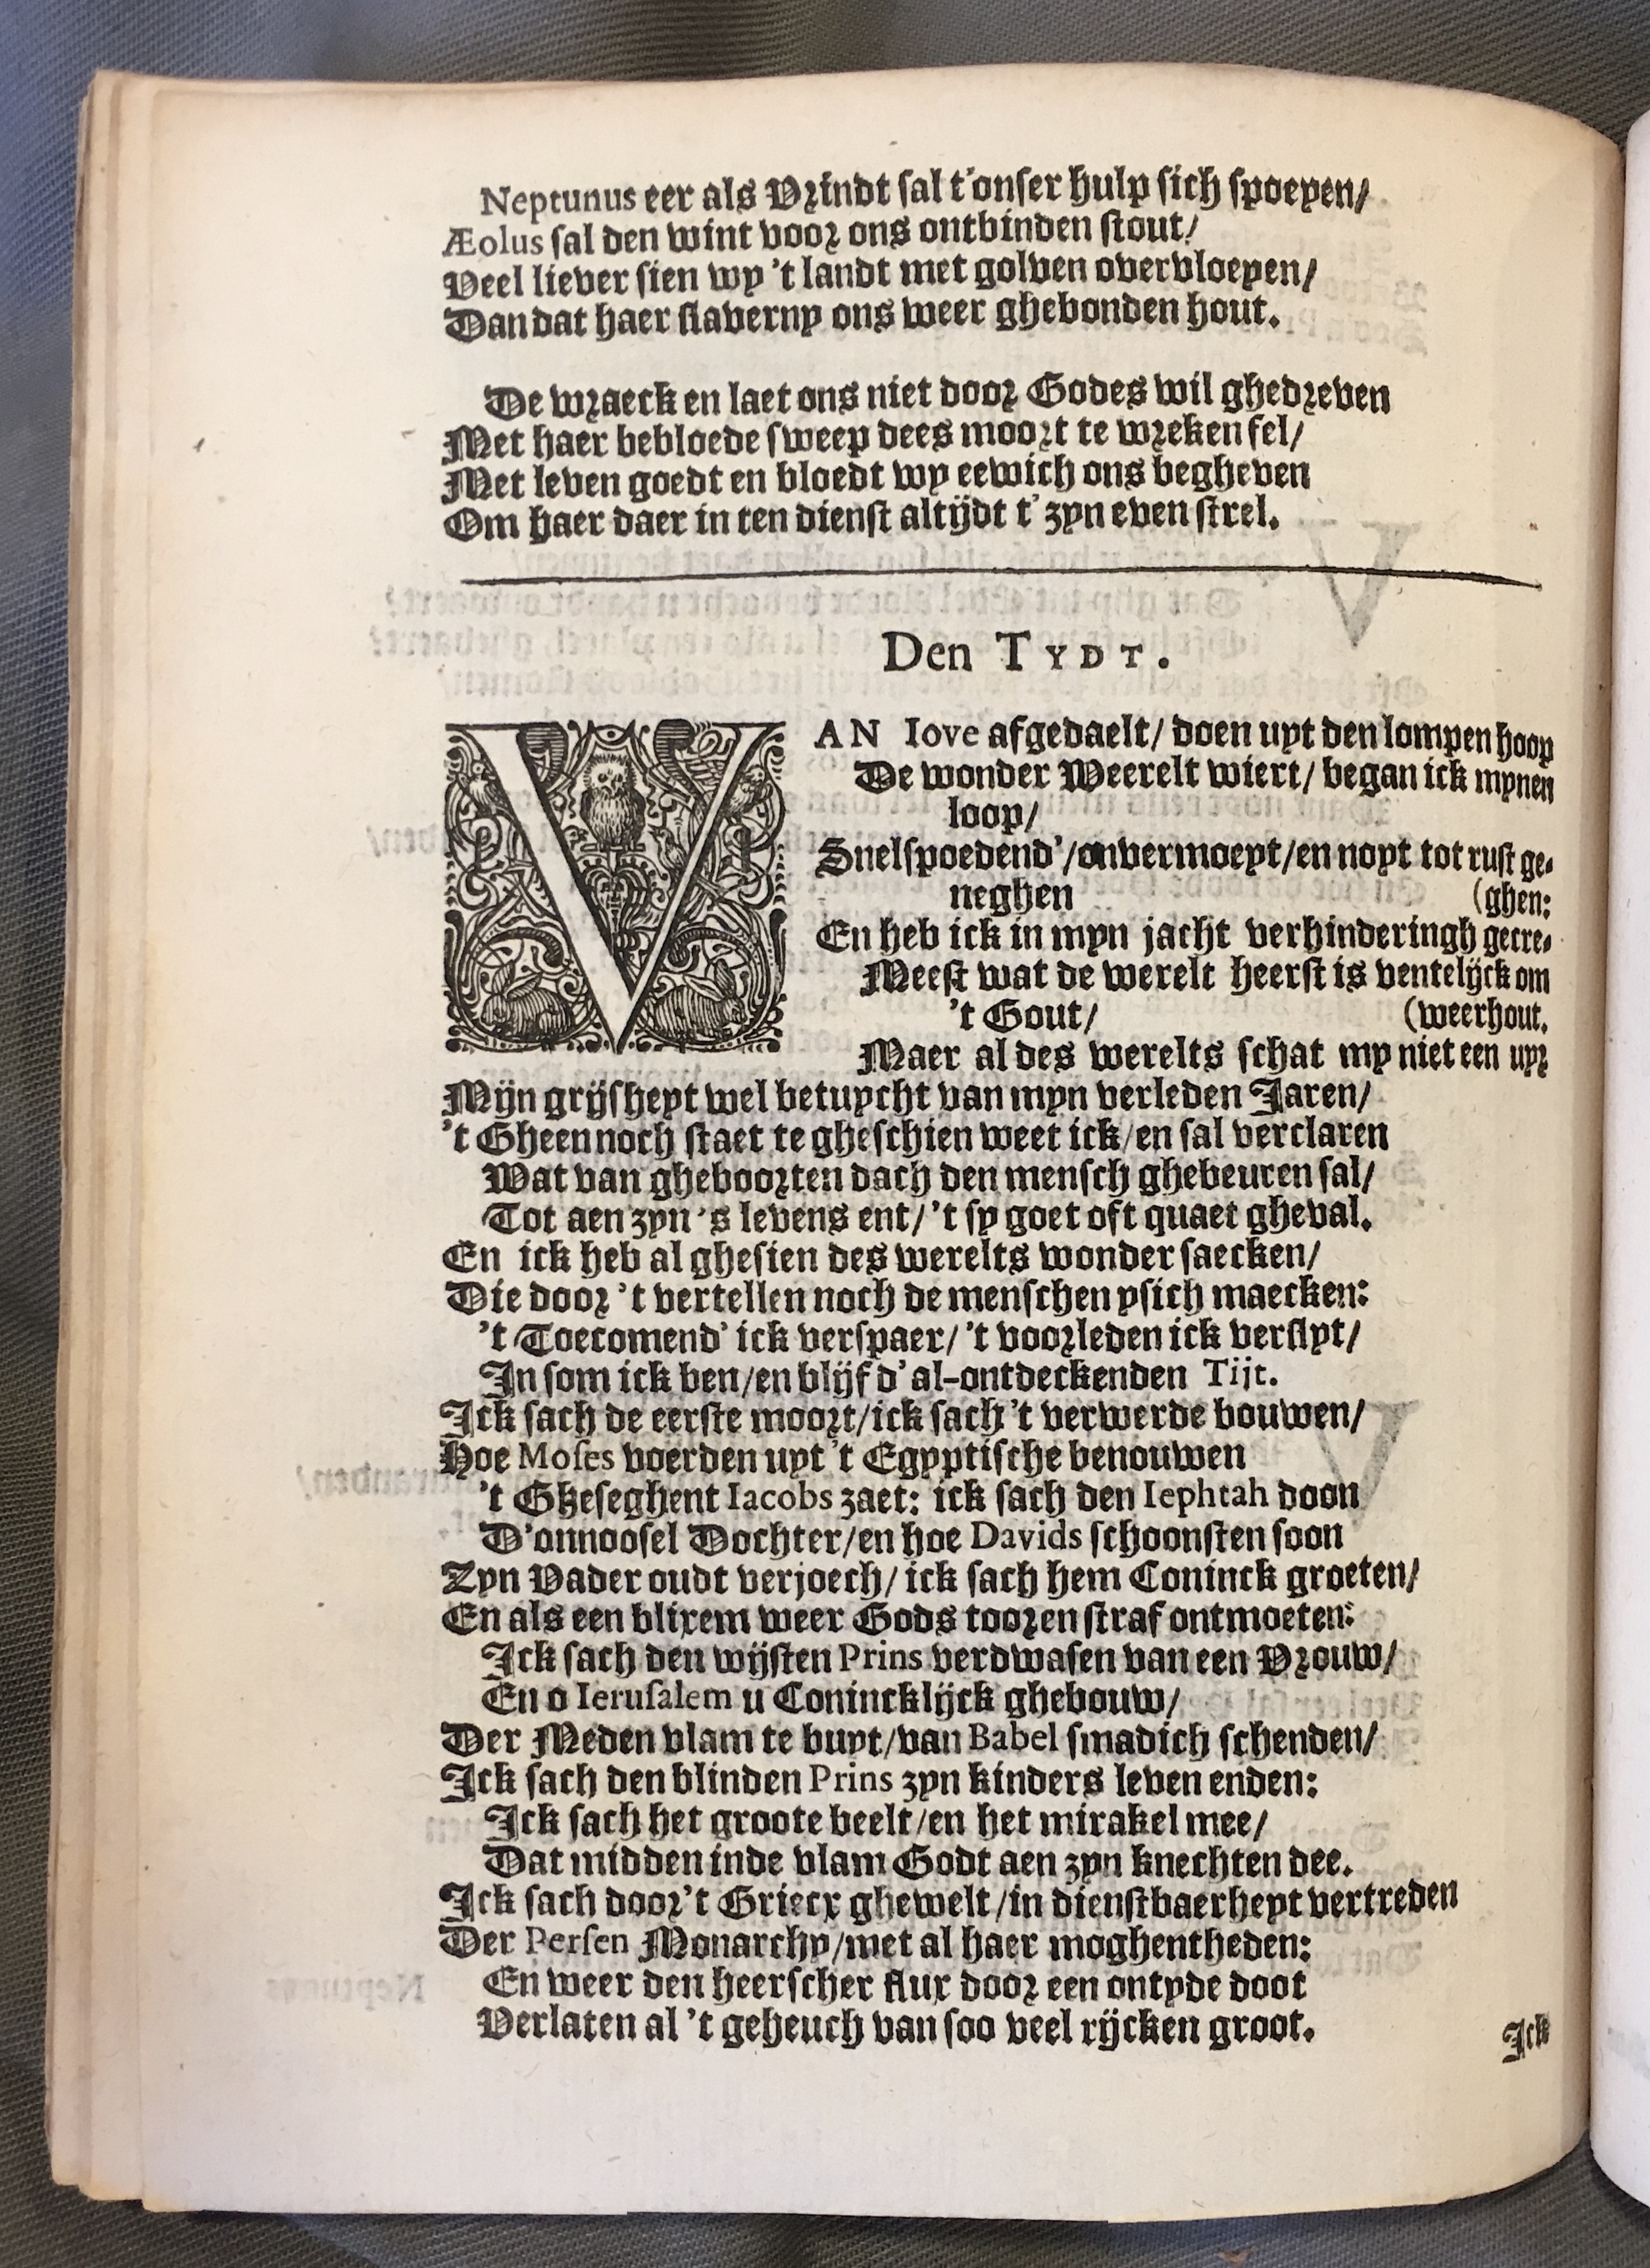 Neptunus eer als Vrindt sal t'onser hulp sich spoeyen/
Æolus sal den wint voor ons ontbinden stout/
Veel liever sien wy 't landt met golven overvloeyen/
Dan dat haer slaverny ons weer ghebonden hout.
De wraeck en laet ons niet door Godes wil ghedreven
Met haer bebloede sweep dees moort te wreken fel/
Met leven goedt en bloedt wy eewich ons begheven
Om haer daer in ten dienst altijdt t' zyn even strel.
Den TYDT.
VAN Iove afgedaelt/ doen uyt den lompen hoop
De wonder Weerelt wiert/ began ick mynen
loop/
Snelspoedend'/onvermoeyt/en noyt tot rust ge-
neghen (ghen:
En heb ick in myn jacht verhinderingh gecre-
Meest wat de werelt heerst is ventelijck om
't Gout/ (weerhout.
Maer al des werelts schat my niet een uyr
Mijn grijsheyt wel betuycht van myn verleden Jaren/
't Gheen noch staet te gheschien weet ick/en sal verclaren
Wat van gheboorten dach den mensch ghebeuren sal/
Tot aen zyn 's levens ent/'t sy goet oft quaet gheval.
En ick heb al ghesien des werelts wonder saecken/
Die door 't vertellen noch de menschen ysich maecken:
't Toecomend' ick verspaer/'t voorleden ick verslyt/
In som ick ben/en blijf d'al-ontdeckenden Tijt.
Ick sach de eerste moort/ick sach 't verwerde bouwen/
Hoe Moses voerden uyt 't Egyptische benouwen
't Gheseghent Iacobs zaet: ick sach den Iephtah doon
D'onnoosel Dochter/en hoe Davids schoonsten soon
Zyn Vader oudt verjoech/ ick sach hem Coninck groeten/
En als een blixem weer Gods tooren straf ontmoeten:
Ick sach den wijsten Prins verdwasen van een Vrouw/
En o Ierusalem u Conincklijck ghebouw/
Der Meden vlam te buyt/van Babel smadich schenden/
Ick sach den blinden Prins zyn kinders leven enden:
Ick sach het groote beelt/en het mirakel mee/
Dat midden inde vlam Godt aen zyn knechten dee.
Ick sach door't Griecx ghewelt/in dienstbaerheyt vertreden
Der Persen Monarchy/met al haer moghentheden:
En weer den heerscher flux door een ontyde doot
Verlaten al 't geheuch van soo veel rijcken groot.
Ick